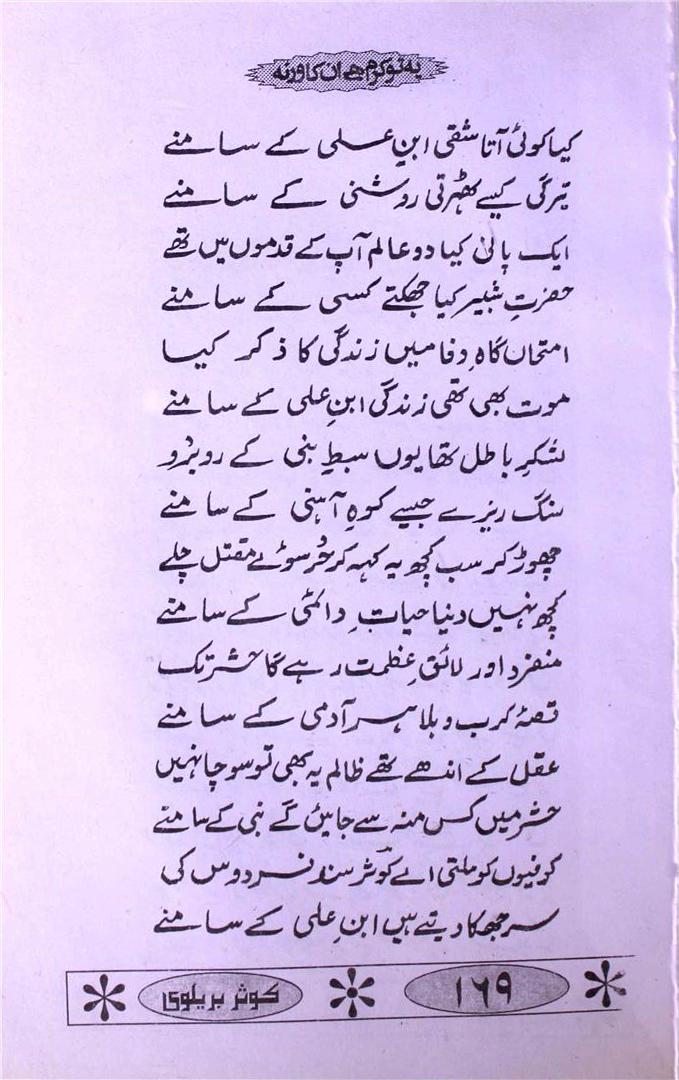 یہ تو کرم ہے ان کا ورنہ
کیا کوئی آتا شقی ابنِ علی کے سامنے
تیرگی کیسے ٹھہرتی روشنی کے سامنے
ایک پانی کیا دو عالم آپ کے قدموں میں تھے
حضرتِ شبیر کیا جھکتے کسی کے سامنے
امتحاں گاہِ وفا میں زندگی کا ذکر کیا
موت بھی تھی زندگی ابنِ علی کے سامنے
لشکرِ باطل تھا یوں سبطِ نبی کے روبرو
سنگ ریزے جیسے کوہِ آہنی کے سامنے
چھوڑ کر سب کچھ یہ کہہ کر حُر سوئے مقتل چلے
کچھ نہیں دنیا حیاتِ دائمی کے سامنے
منفرد اور لائقِ عظمت رہے گا حشر تک
قصۂ کرب و بلا ہر آدمی کے سامنے
عقل کے اندھے تھے ظالم یہ بھی تو سوچا نہیں
حشر میں کس منہ سے جائیں گے نبی کے سامنے
کوفیوں کو ملتی اے کوثر سند فردوس کی
سر جھکا دیتے ہیں ابنِ علی کے سامنے
۱۶۹
کوثر بریلوی